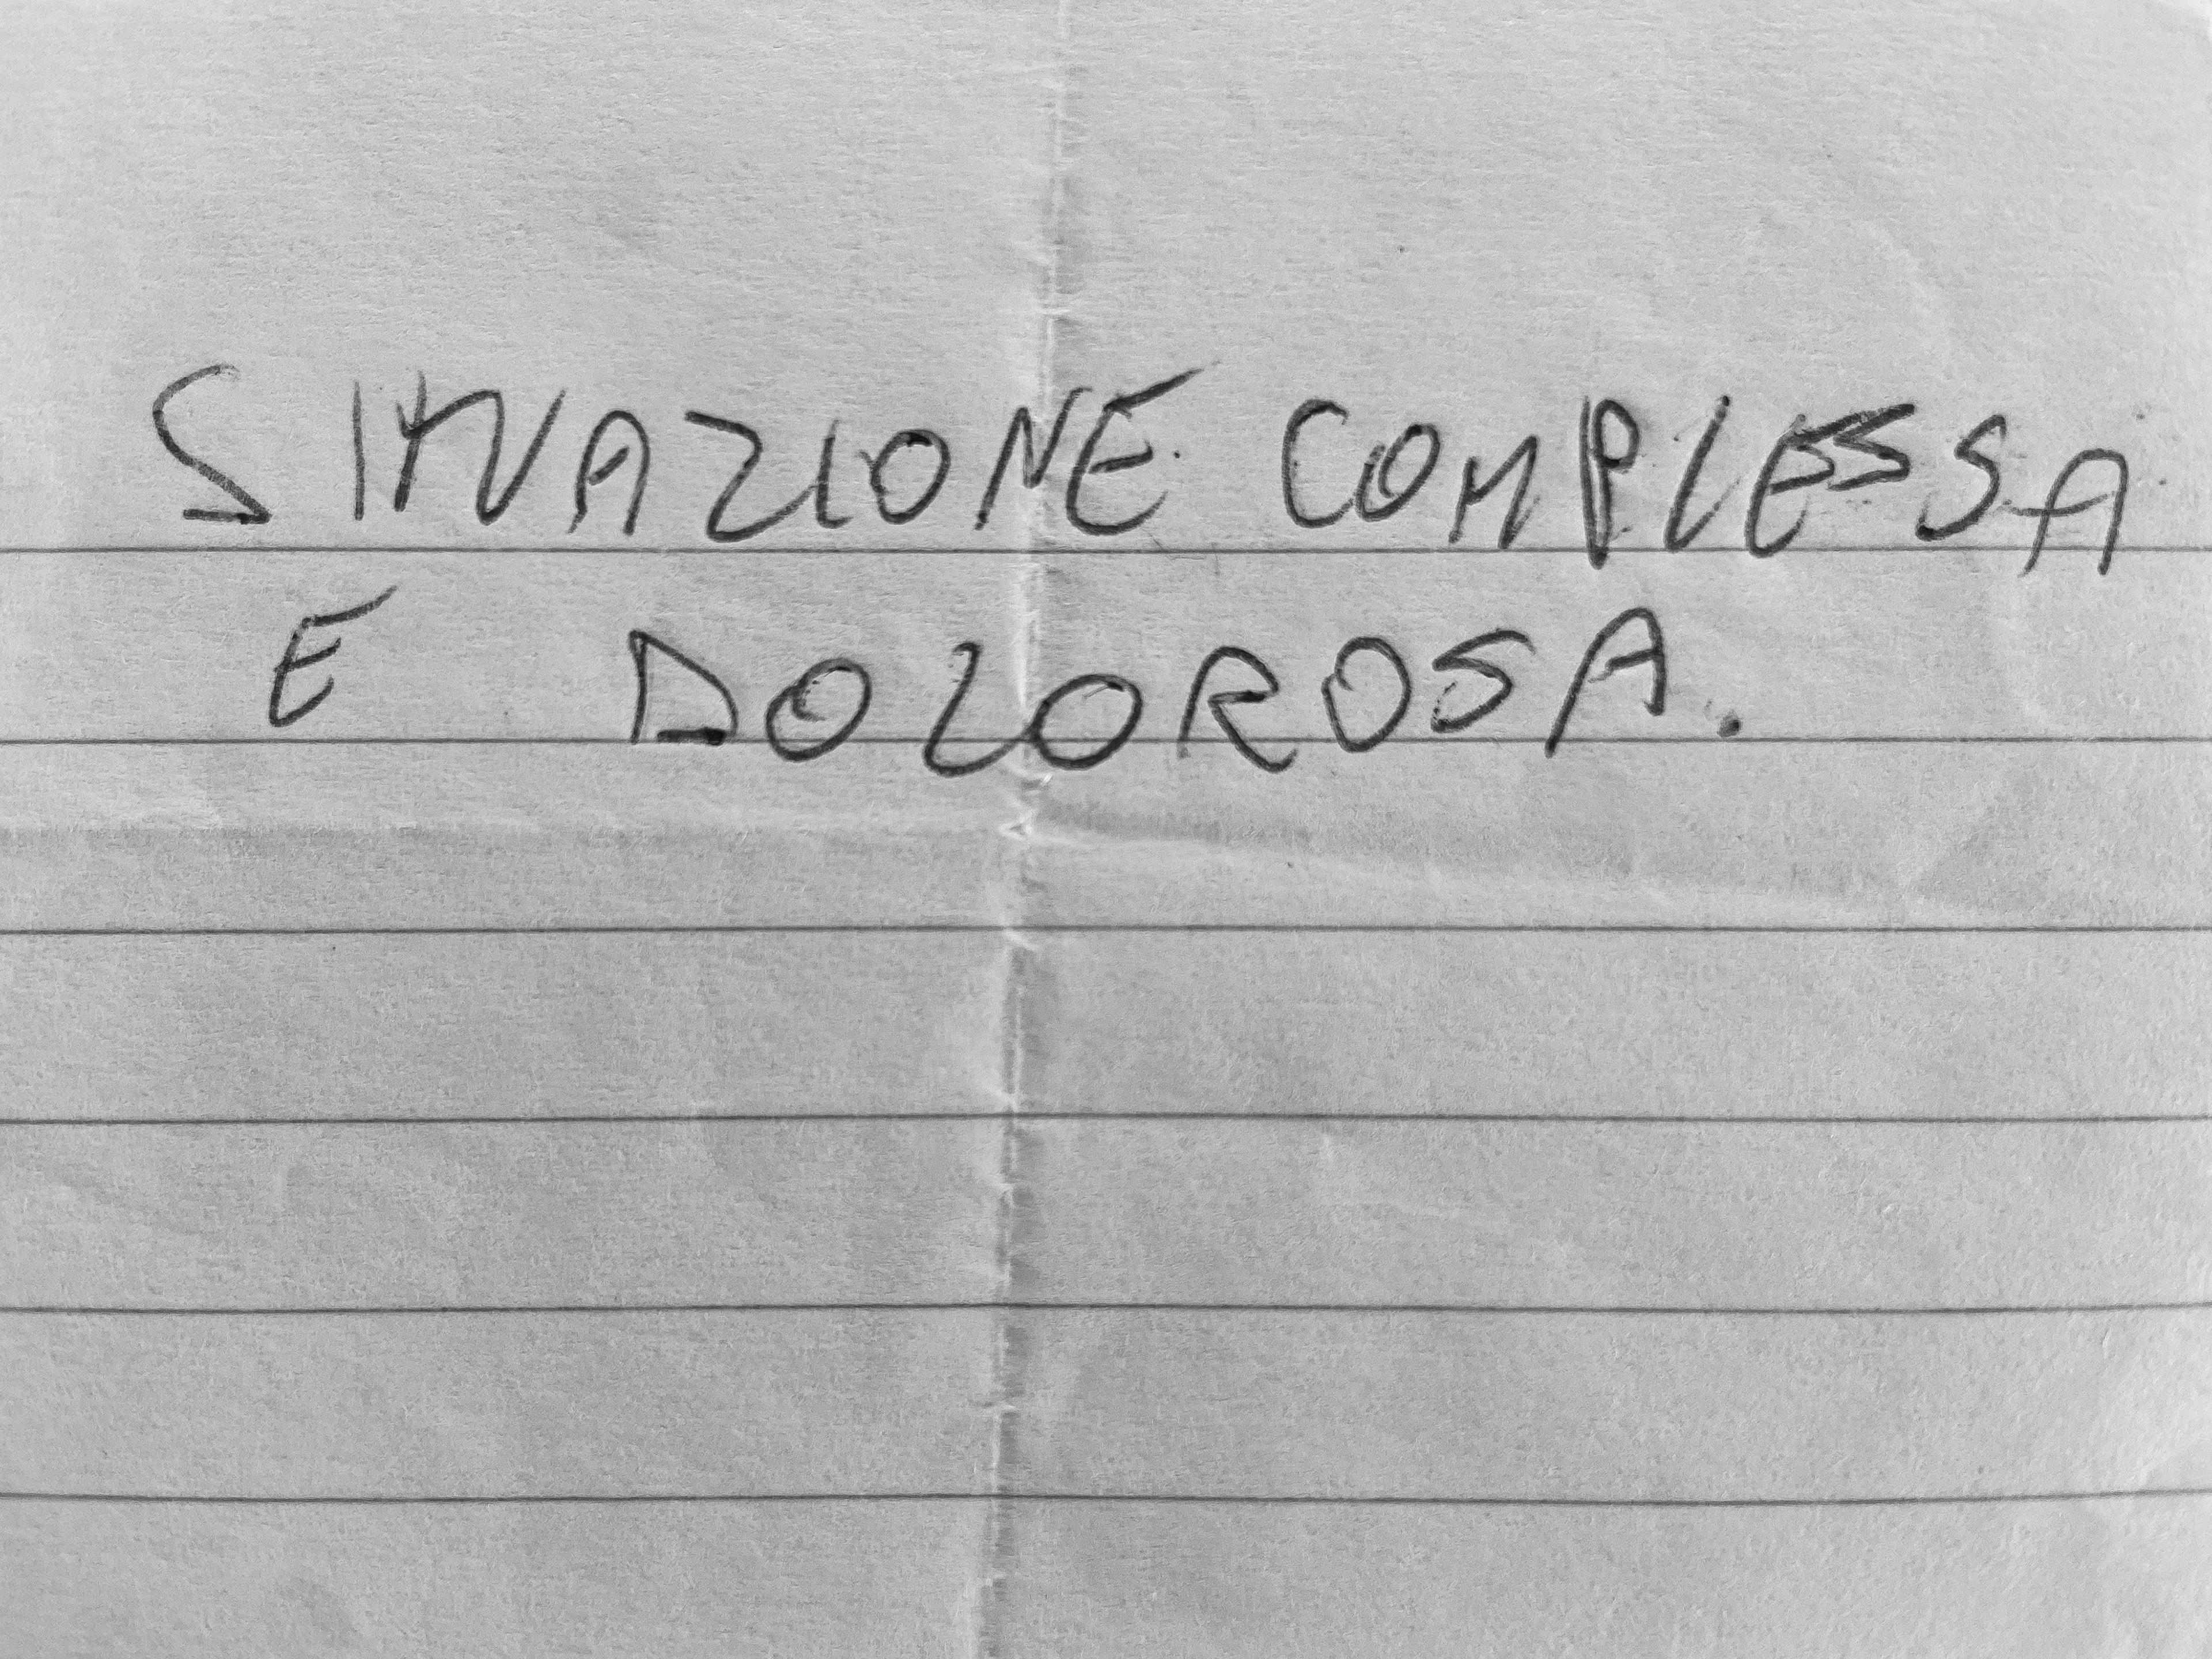 SITUAZIONE COMPLESSA
E DOLOROSA.